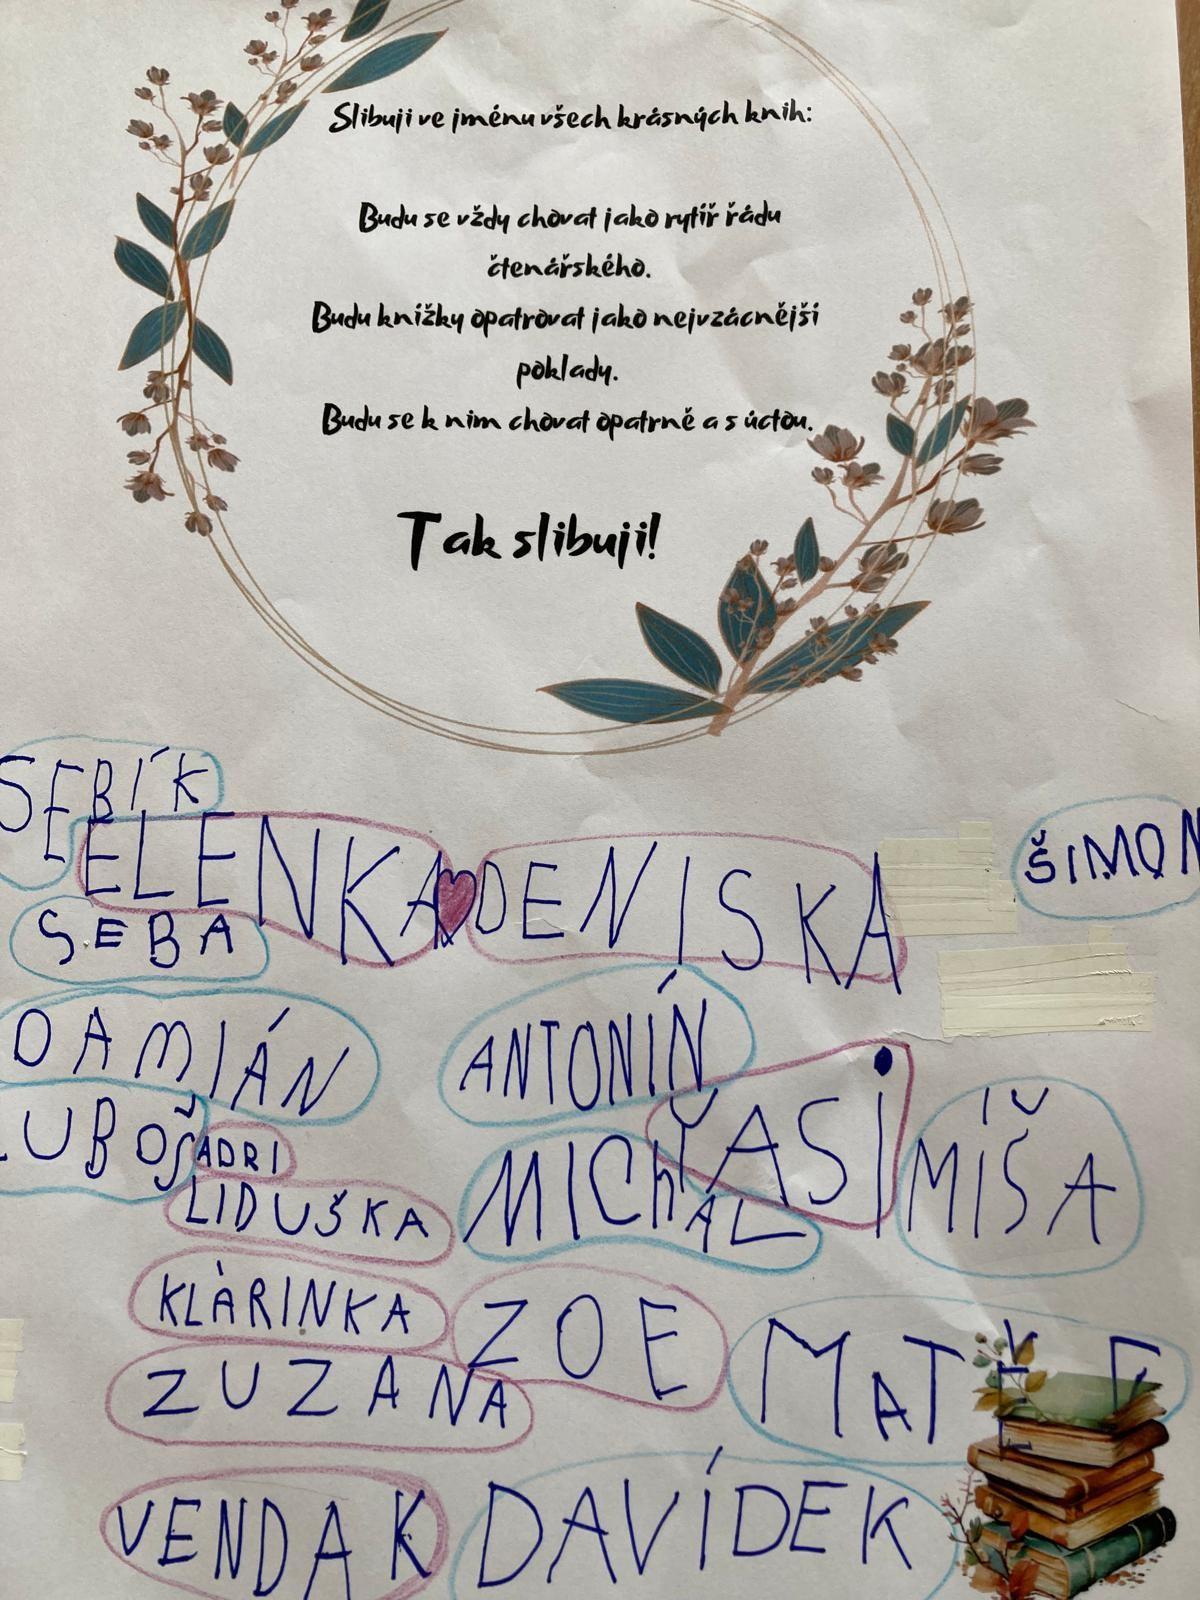 Slibuji ve jménu všech krásných knih:
Budu se vždy chovat jako rytíř řádu
čtenářského.
Budu knížky opatrovat jako nejvzácnější
poklady.
Budu se k nim chovat opatrně a s úctou.
Tak slibuji!
SEBÍK
ELENKA DENISKA
ŠIMON
SEBA
DAMIÁN
ANTONÍN
LUBOŠ
ADRI
MICHAL
MÍŠA
LIDUŠKA
KLÁRINKA
ZOE
ZUZANA
VENDA K
DAVÍDEK